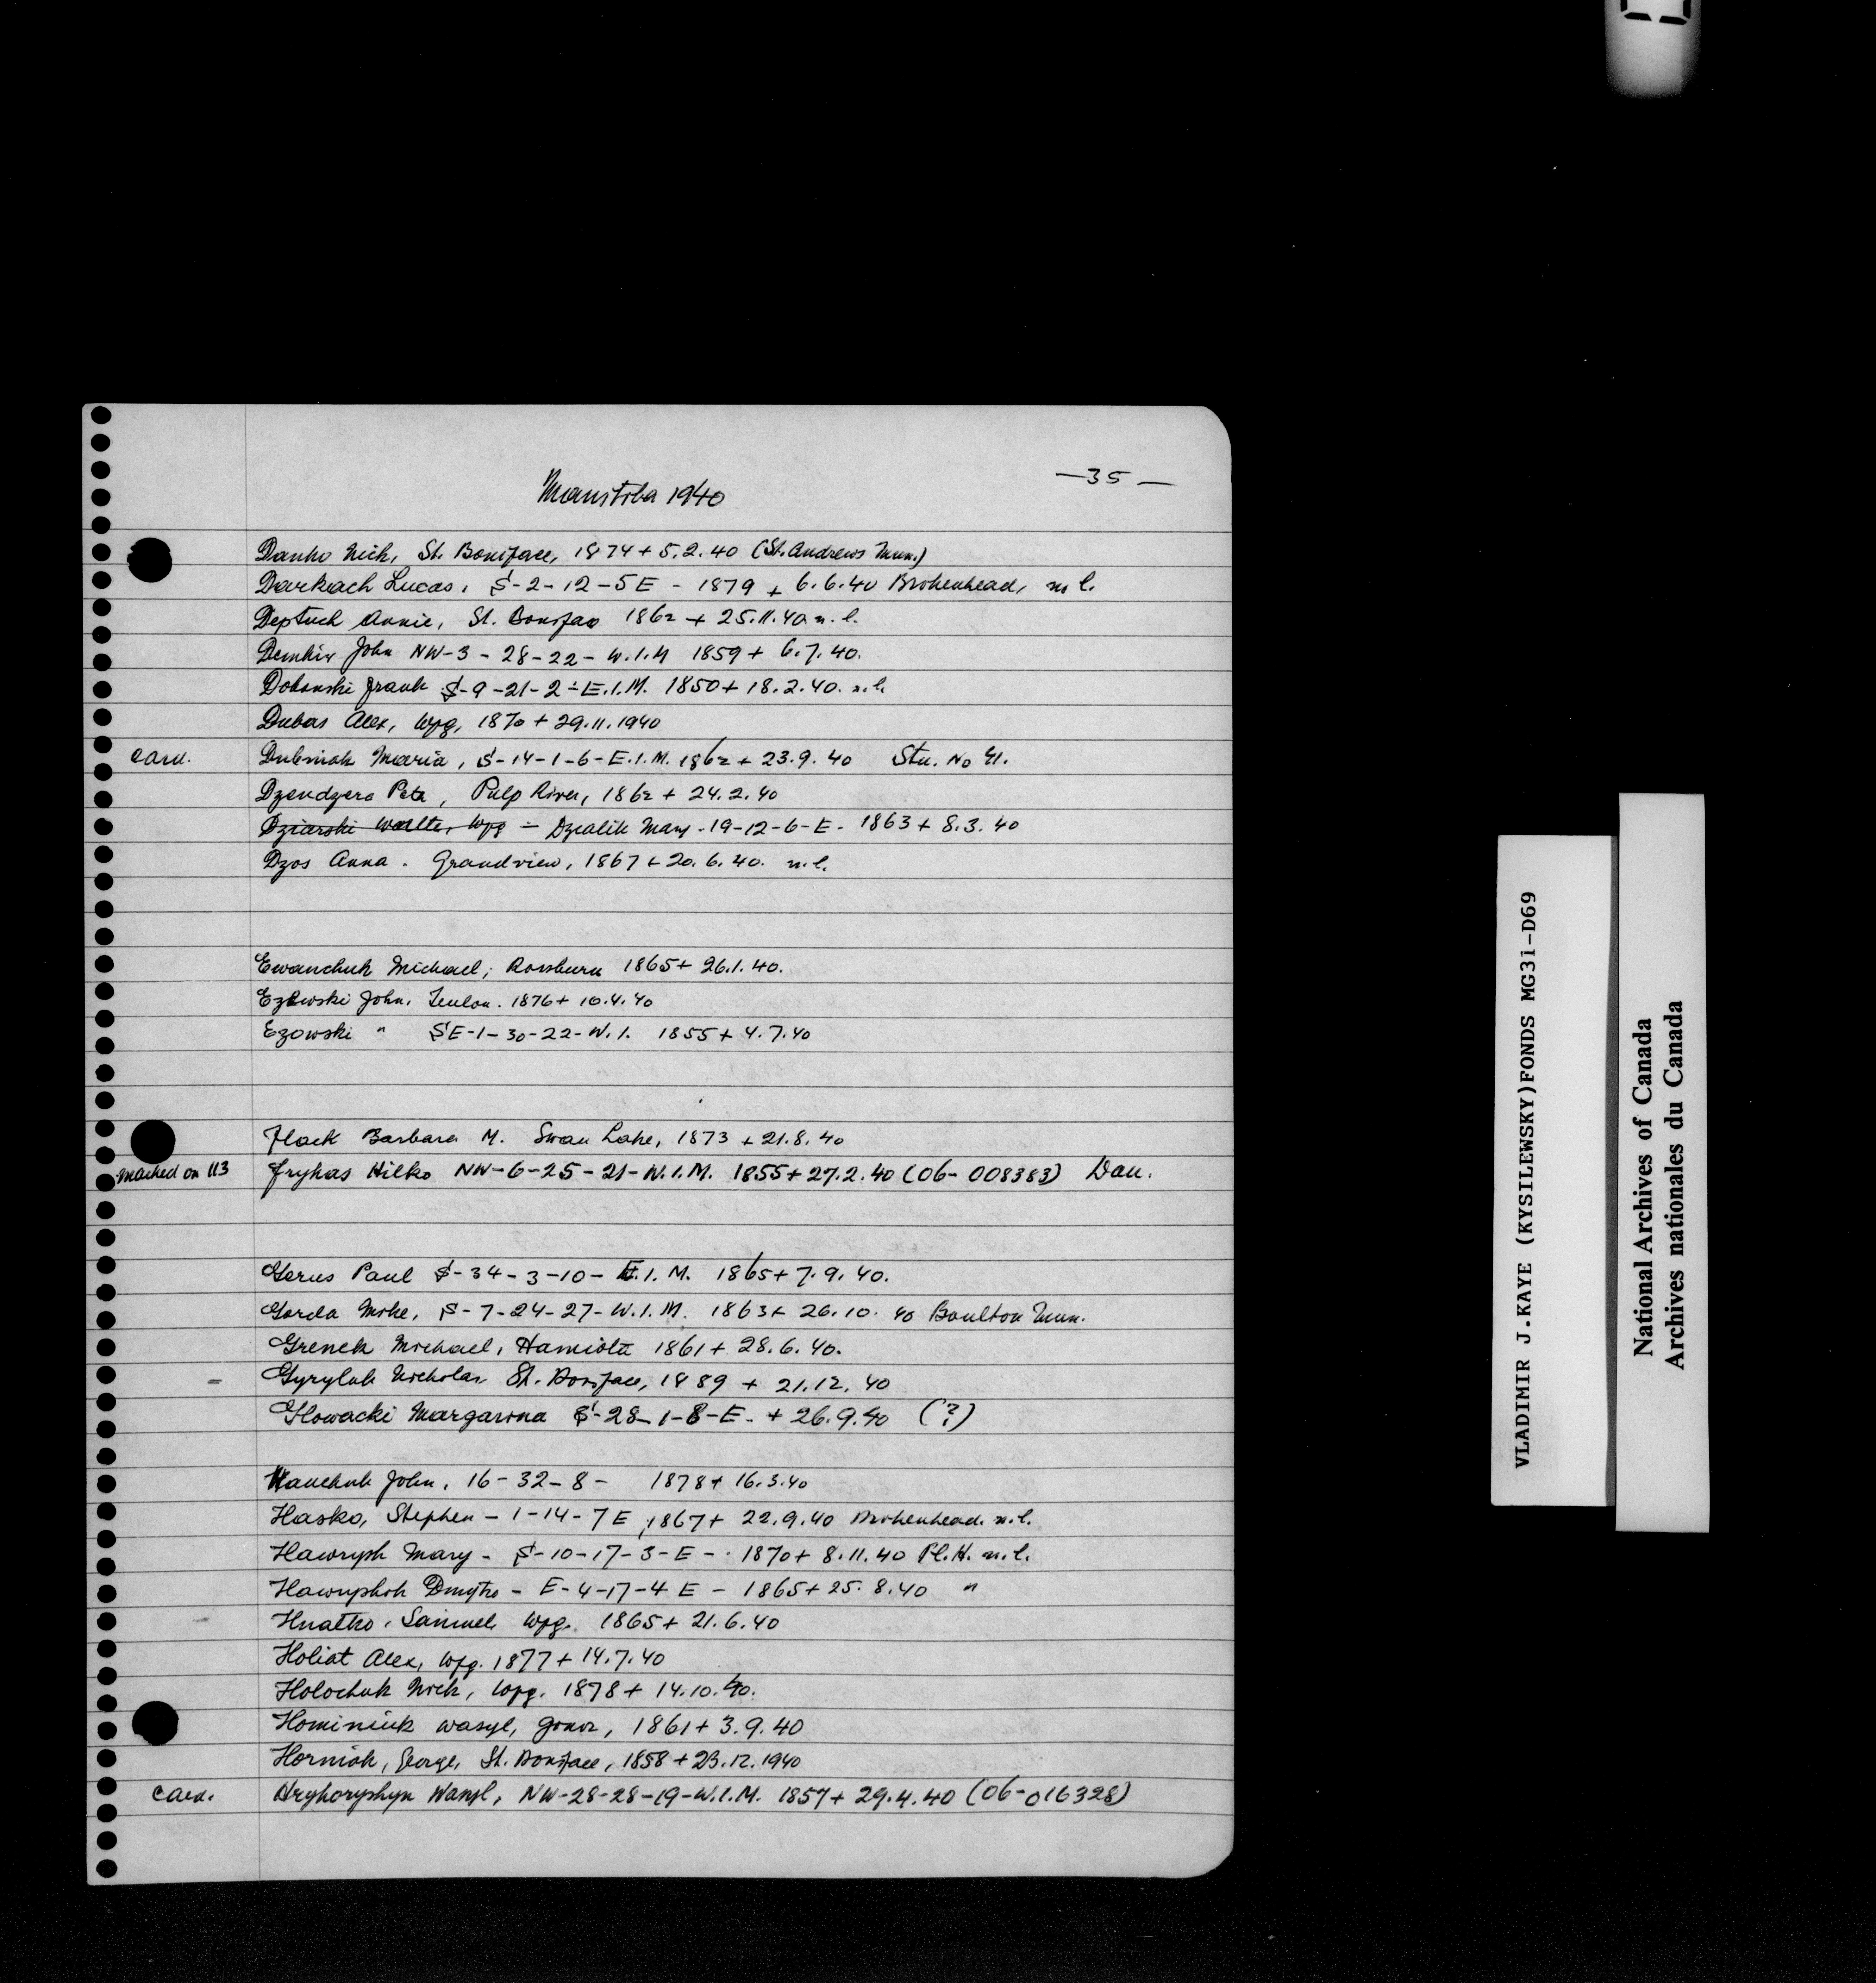 —35—
Manitoba 1940
Danko Nick, St. Boniface, 1874 + 5.2.40 (St. Andrews Mun.)
Darkach Lucas, S-2-12-5E - 1879 + 6.6.40 Brokenhead, n.l.
Deptuch Annie, St. Boniface 1862 + 25.11.40 n.l.
Demkiw John NW-3-28-22-W.1.M 1859 + 6.7.40.
Dobanski Frank S-9-21-2-E.1.M. 1850 + 18.2.40. n.l.
Dubas Alex, Wpg, 1870 + 29.11.1940
Card. Dubniak Maria, S-14-1-6-E.1.M. 1862 + 23.9.40 Stu. No 41.
Dzendzera Pete, Pulp River, 1862 + 24.2.40
Dziarski Walter, Wpg — Dzialik Mary - 19-12-6-E- 1863 + 8.3.40
Dzos Anna. Grandview, 1867 + 20.6.40. n.l.
Ewanchuk Michael, Rossburn 1865 + 26.1.40.
Ezowski John. Teulon. 1876 + 10.4.40
Ezowski " SE-1-30-22-W.1. 1855 + 4.7.40
Flack Barbara M. Swan Lake, 1873 + 21.8.40
Marked on 113 Frykas Hilko NW-6-25-21-W.1.M. 1855 + 27.2.40 (06-008383) Dau.
Gerus Paul S-34-3-10-E.1.M. 1865 + 7.9.40.
Gorda Mike, S-7-24-27-W.1.M. 1863 + 26.10.40 Boulton Mun.
Grenek Michael, Hamiota 1861 + 28.6.40.
- Gyryluk Nicholas St. Boniface, 1889 + 21.12.40
Glowacki Margarina S-28-1-8-E- + 26.9.40 (?)
Hanchuk John, 16-32-8- 1878 + 16.3.40
Hasko, Stephen - 1-14-7E, 1867 + 22.9.40 Brokenhead. n.l.
Hawrysh Mary - S-10-17-3-E- 1870 + 8.11.40 Pl.H. n.l.
Hawryshok Dmytro - E-4-17-4E - 1865 + 25.8.40 "
Hnatko, Samuel, Wpg. 1865 + 21.6.40
Holiat Alex, Wpg. 1877 + 14.7.40
Holochuk Nick, Wpg. 1878 + 14.10.40.
Hominiuk Wasyl, Gonor, 1861 + 3.9.40
Horniak, George, St. Boniface, 1858 + 23.12.1940
Card. Hryhoryshyn Wasyl, NW-28-28-19-W.1.M. 1857 + 29.4.40 (06-016328)
VLADIMIR J.KAYE (KYSILEWSKY)FONDS MG31-D69
National Archives of Canada
Archives nationales du Canada